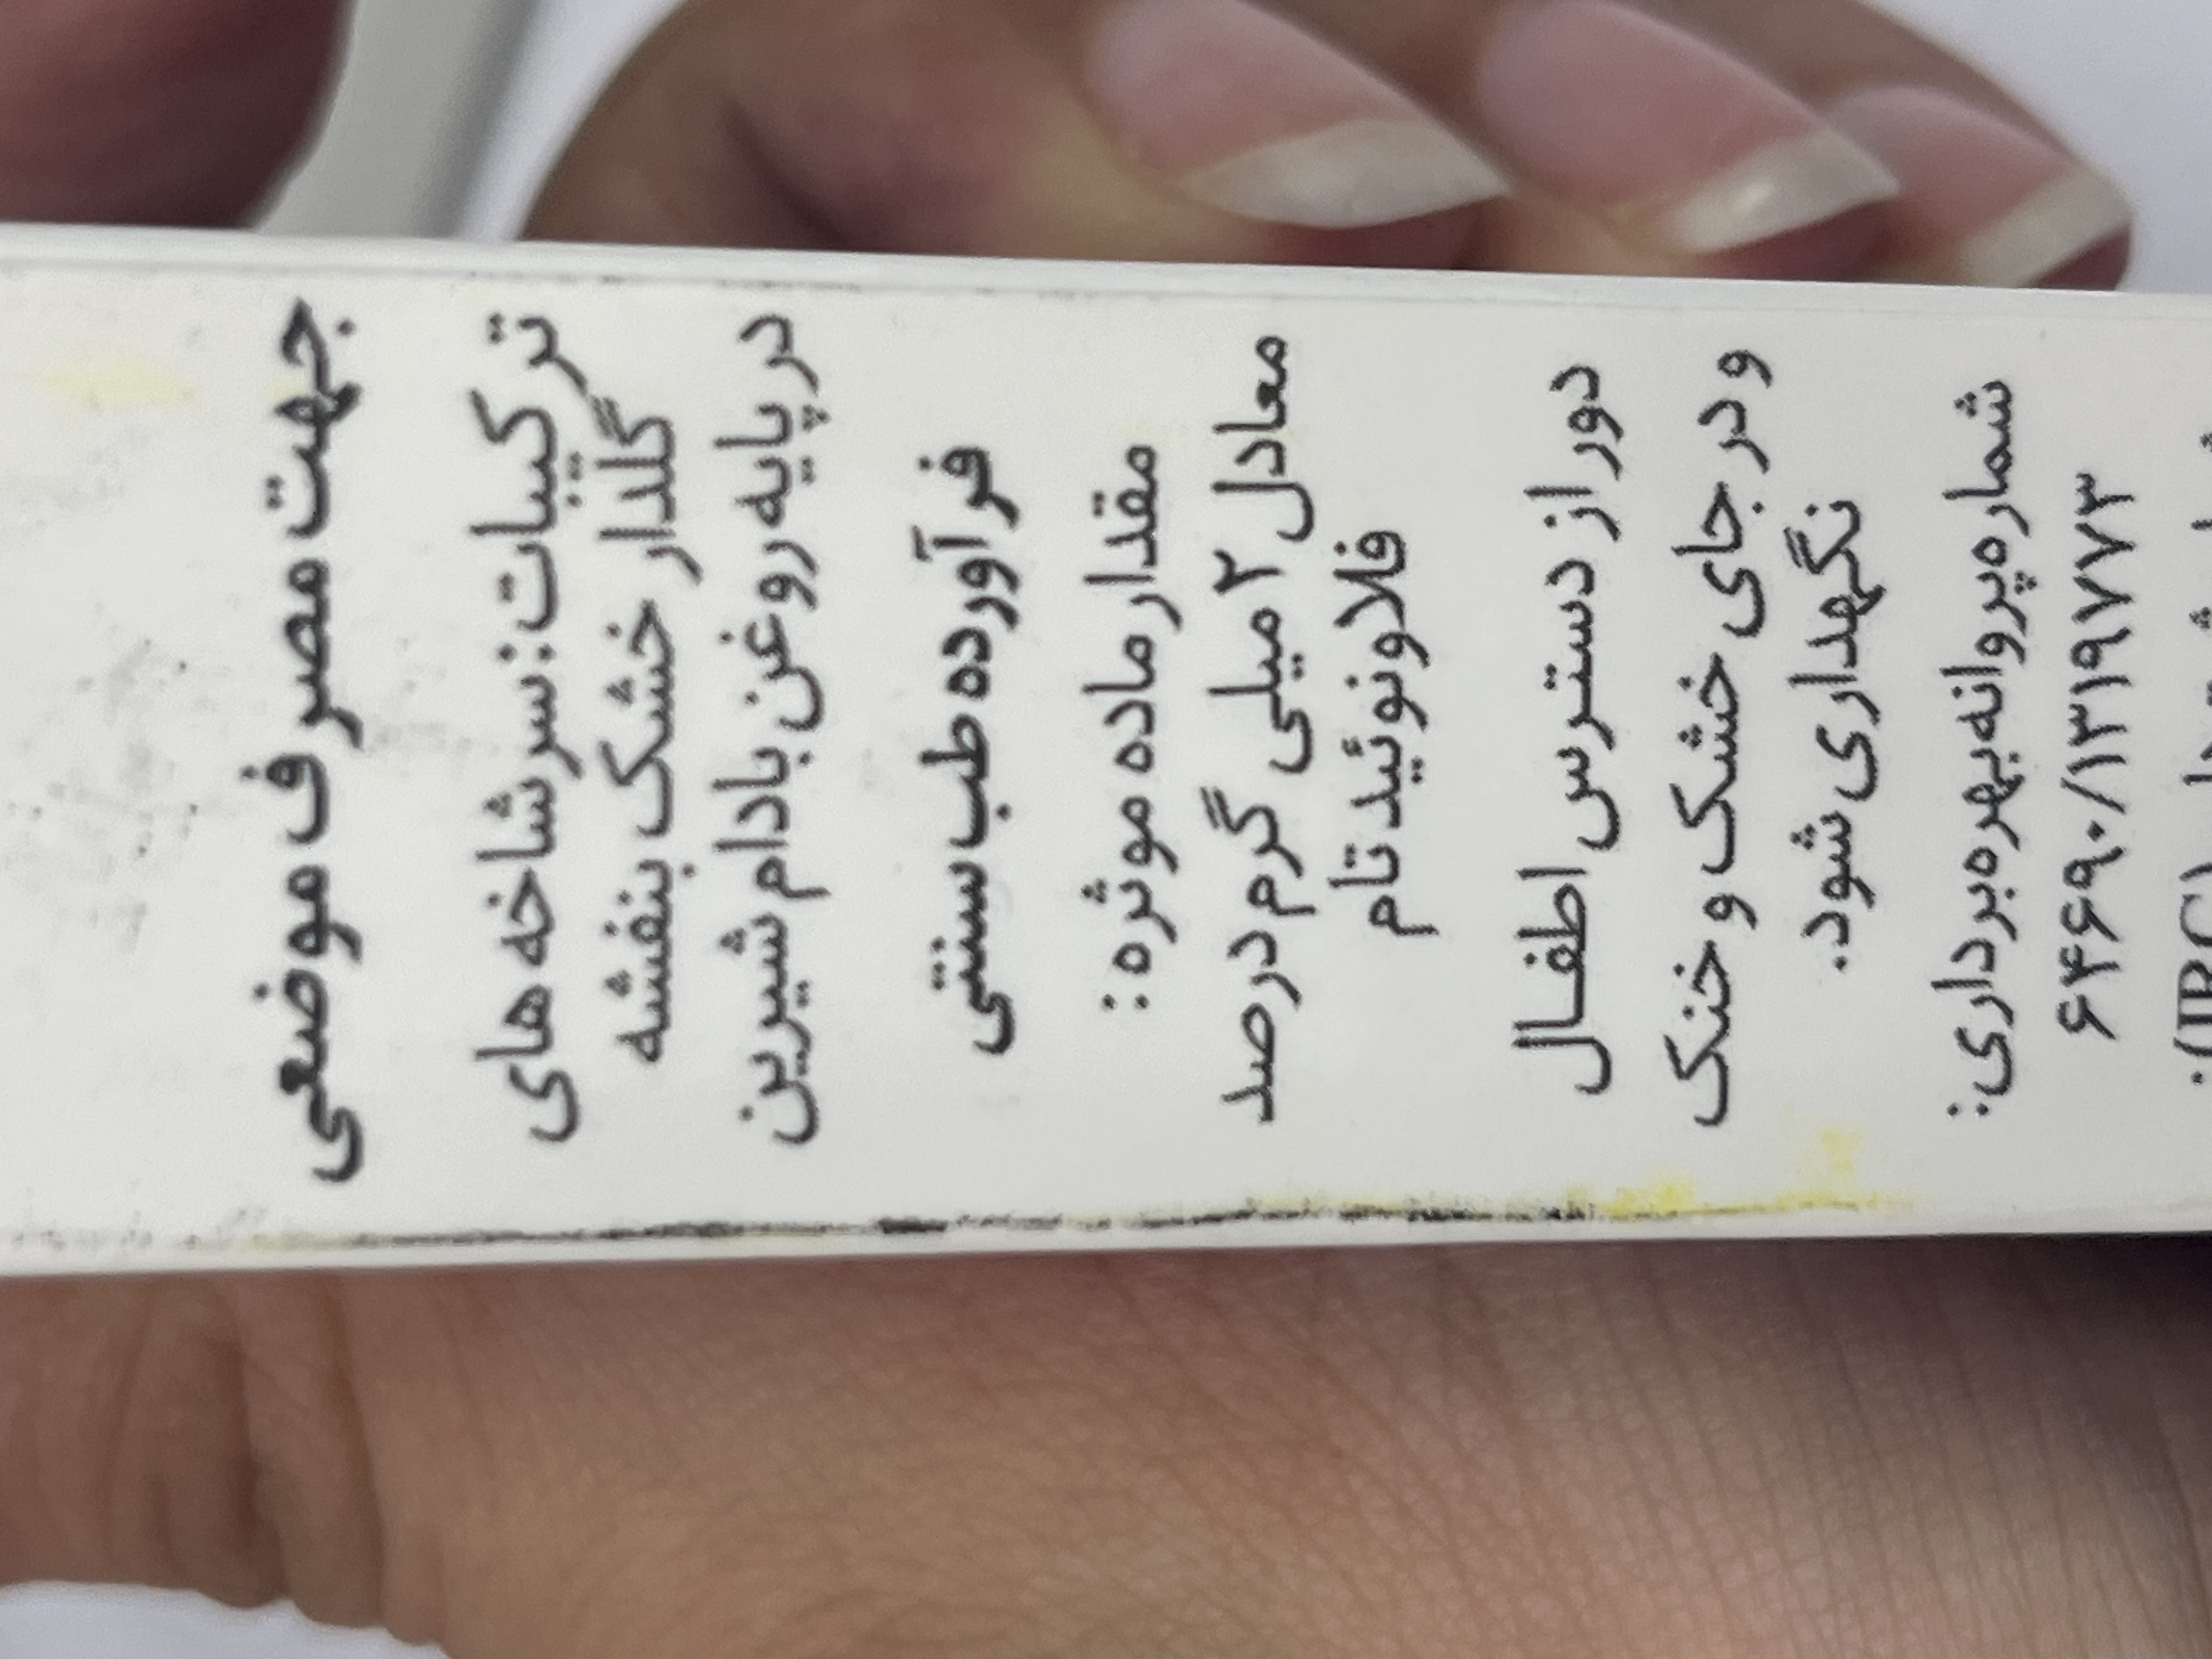 جهت مصرف موضعی
ترکیبات: سرشاخه های
گلدار خشک بنفشه
در پایه روغن بادام شیرین
فرآورده طب سنتی
مقدار ماده موثره :
معادل ۲ میلی گرم درصد
فلاونوئید تام
دور از دسترس اطفال
و در جای خشک و خنک
نگهداری شود.
شماره پروانه بهره برداری:
۶۴۶۹۰/۱۳۱۹۷۷۳
(IRC)